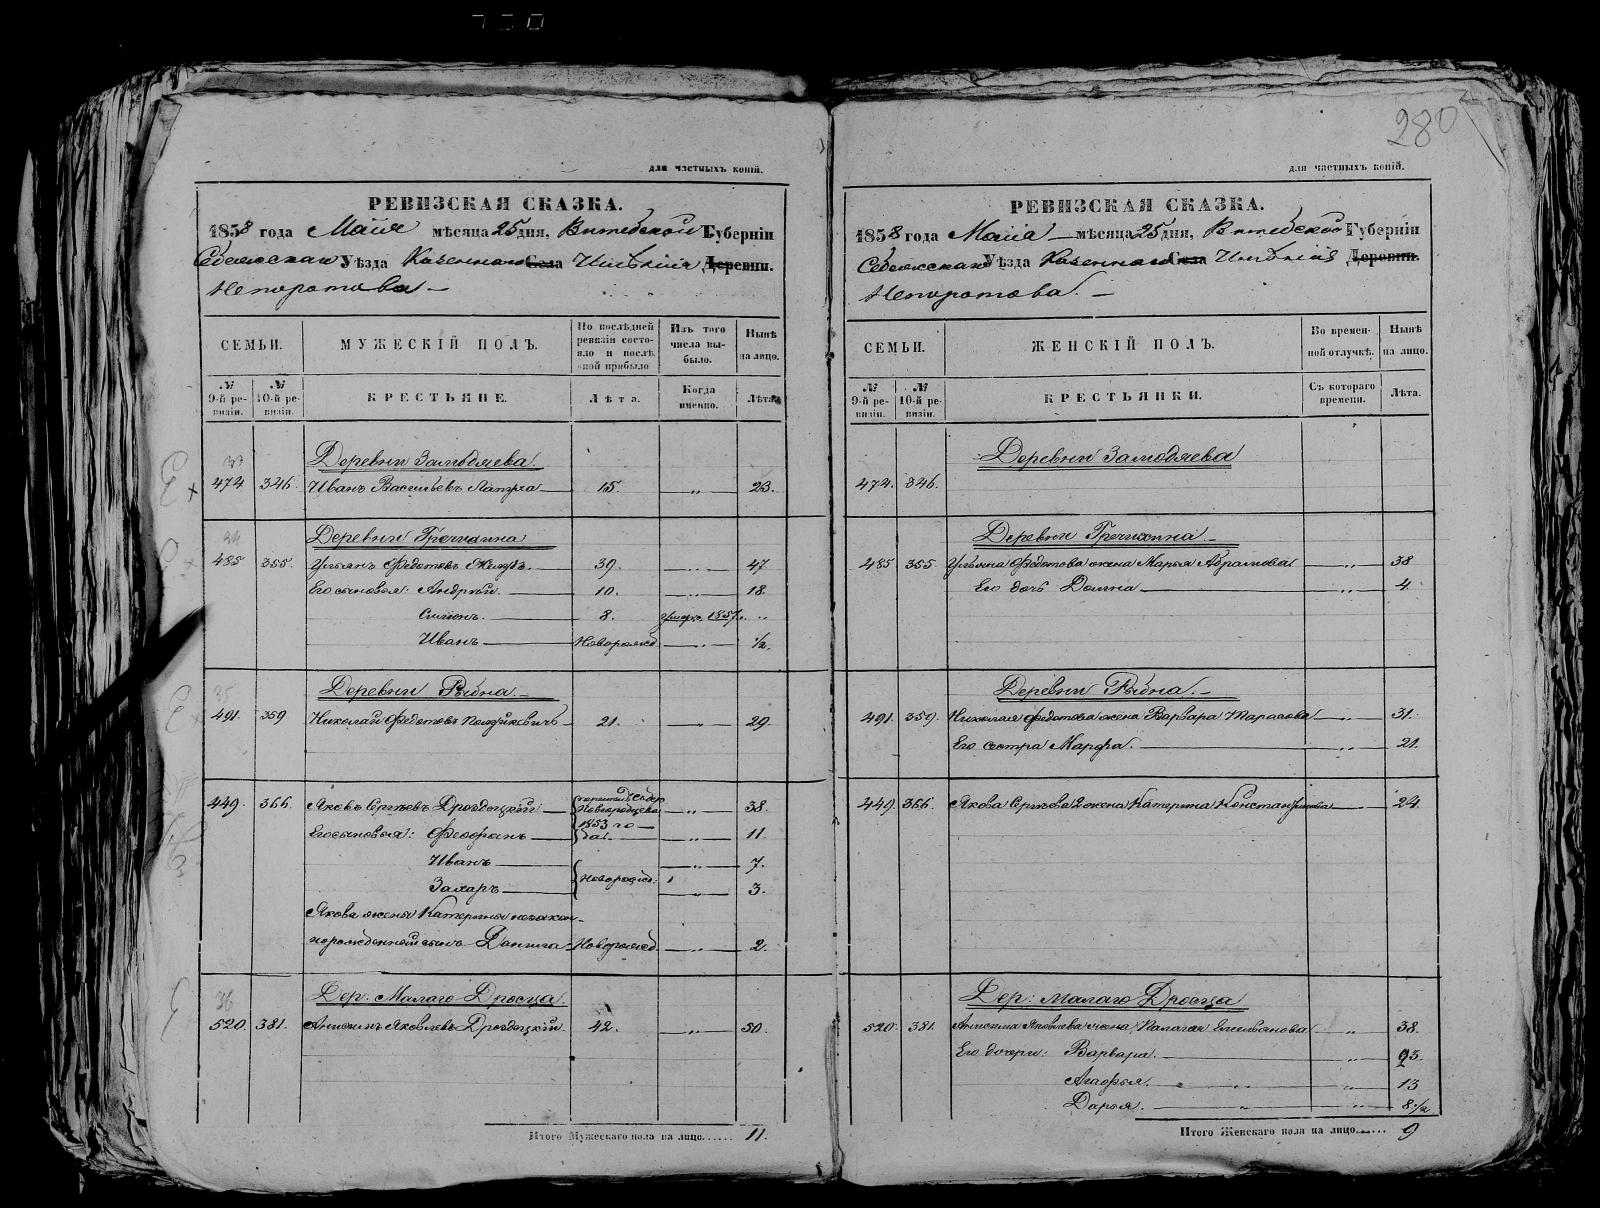 280
для частныхъ копій.
РЕВИЗСКАЯ СКАЗКА.
1858 года Маія мѣсяца 25 дня, Витебской Губерніи
Себежскаго Уѣзда Казеннаго Села Имѣнія Деревни.
Непоротова
СЕМЬИ. МУЖЕСКІЙ ПОЛЪ. По послѣдней ревизіи состояло и послѣ оной прибыло Изъ того числа выбыло. Нынѣ на лицо.
№ 9-й ревизіи. № 10-й ревизіи. КРЕСТЬЯНЕ. Лѣта. Когда именно. Лѣта.
33
Деревни Замодяева.
474 346 Иванъ Васильевъ 15. „ 23.
34
Деревни Гречихина
485 355 Ульянъ Федотовъ 39. „ 47
Его сыновья: Андрей. 10. „ 18.
Симонъ. 8. умеръ 1857. „
Иванъ Новорожд. „ ½.
35
Деревни Рыбна.
491. 359 Николай Федотовъ 21. „ 29.
449. 366. Яковъ Сергѣевъ Дроздецкій 1853 го да. „ 38.
Его сыновья: Феофанъ „ 11.
Иванъ „ 7.
Захаръ Новорожд: „ 3.
Якова жены Катерины незакон-
норожденный сынъ Данила Новорожд. „ 2.
36
Дер: Малаго Дросца.
520. 381. Анисимъ Яковлевъ Дроздецкій 42. „ 50.
Итого Мужескаго пола на лицо...... 11.
для частныхъ копій.
РЕВИЗСКАЯ СКАЗКА.
1858 года Маіа мѣсяца 25 дня, Витебской Губерніи
Себежскаго Уѣзда Казеннаго Села Имѣнія Деревни.
Непоротова.
СЕМЬИ. ЖЕНСКІЙ ПОЛЪ. Во временной отлучкѣ. Нынѣ на лицо.
№ 9-й ревизіи. № 10-й ревизіи. КРЕСТЬЯНКИ. Съ котораго времени. Лѣта.
Деревни Замодяева
474. 346.
Деревни Гречихина
485 355 Ульяна Федотова жена Марья Абрамова „ 38
Его дочь Домна „ 4.
Деревни Рыбна.
491. 359. Николая Федотова жена Варвара Тарасова „ 31.
Его сестра Марфа. „ 21.
449. 366. Якова Сергѣева жена Катерина Константинова 24.
Дер: Малаго Дросца
520. 381. Анисима Яковлева жена Палагея Емельянова „ 38.
Его дочери: Варвара. „
Агафья. „ „ 13
Дарья. „ „ 8½
Итого Женскаго пола на лицо...... 9